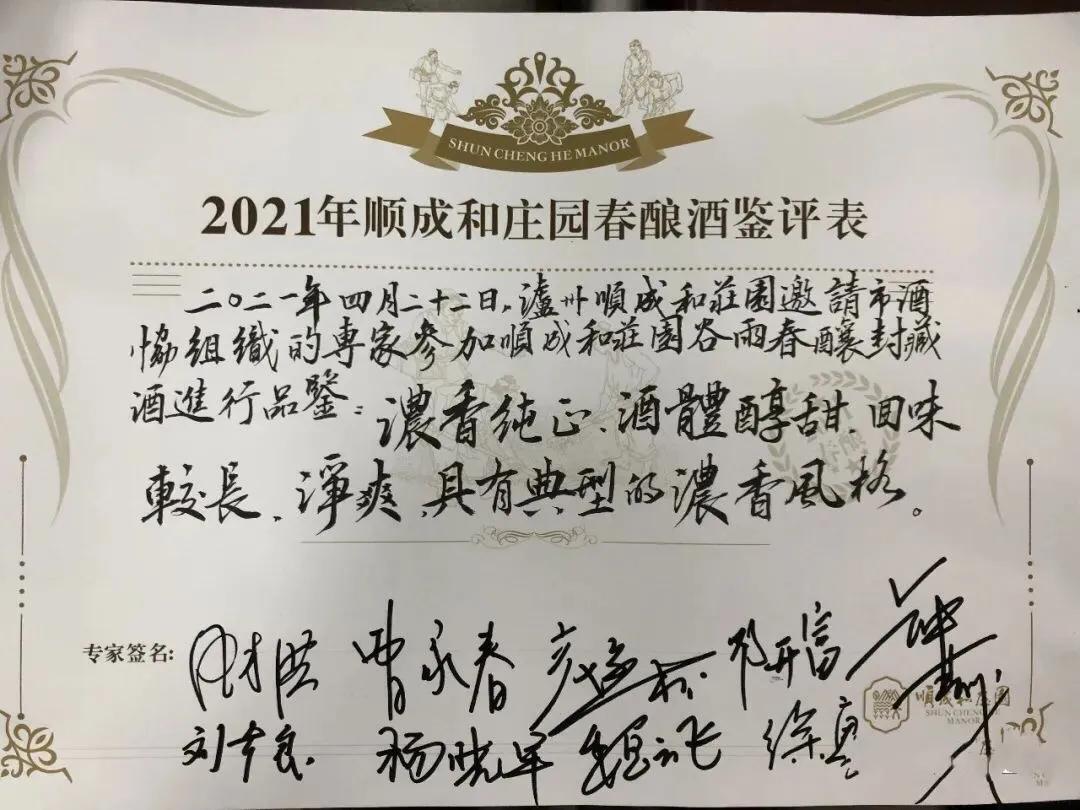 SHUN CHENG HE MANOR
2021年顺成和庄园春酿酒鉴评表
二〇二一年四月二十二日,瀘州順成和莊園邀請市酒
協組織的專家參加順成和莊園谷雨春釀封藏
酒進行品鑒:濃香純正、酒體醇甜、回味
較長、淨爽、具有典型的濃香風格。
专家签名:
曹永春 邓开富
刘 杨晓军 魏飞 徐
順成和庄园
SHUN CHENG HE
MANOR